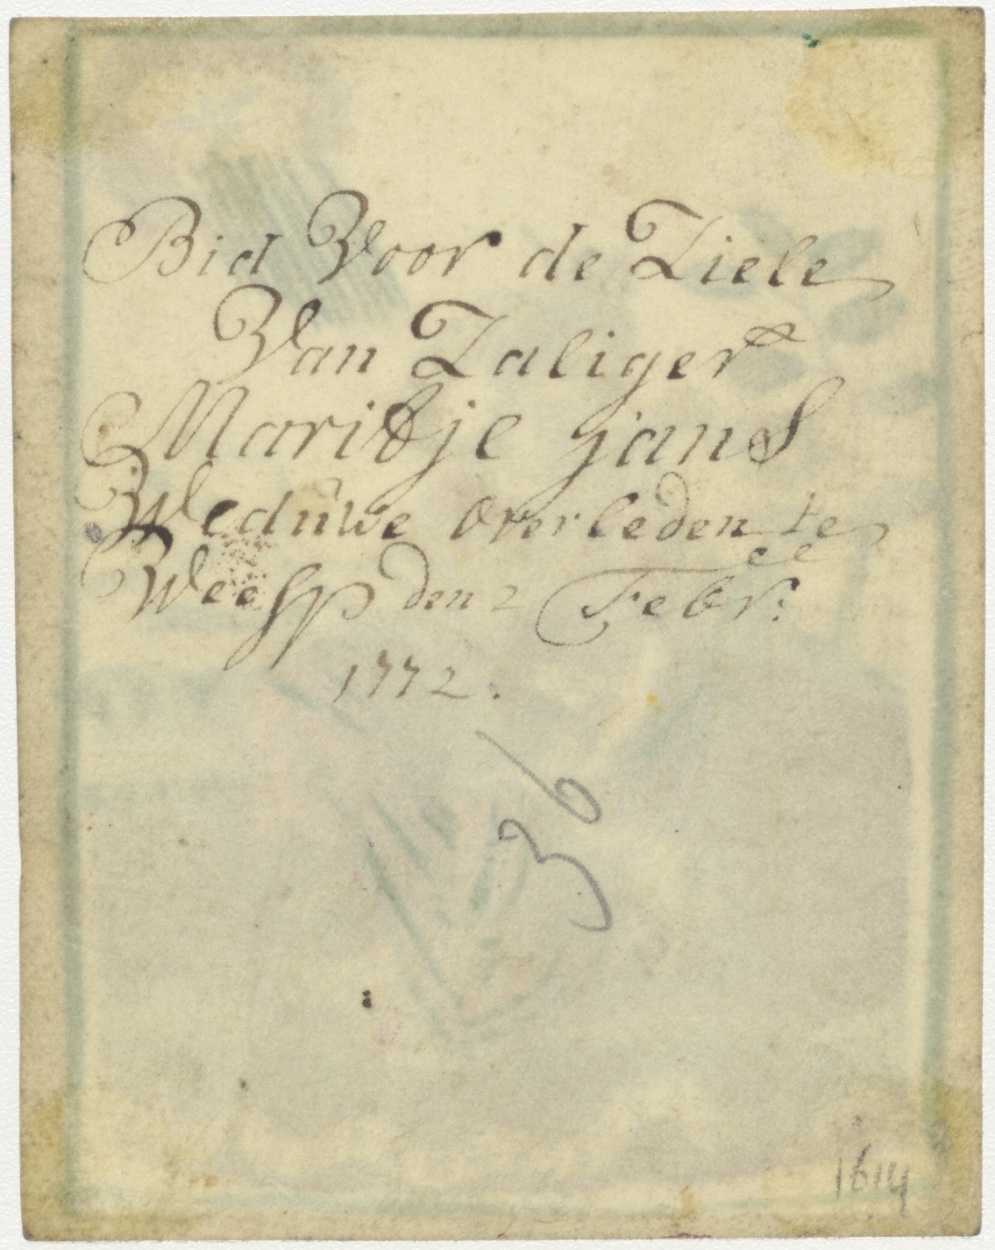 Bid Voor de Ziele
Van Zaliger
Maritje jans
Wedúwe Overleden te
Weesp den 2 Febr:
1772.
36
1614